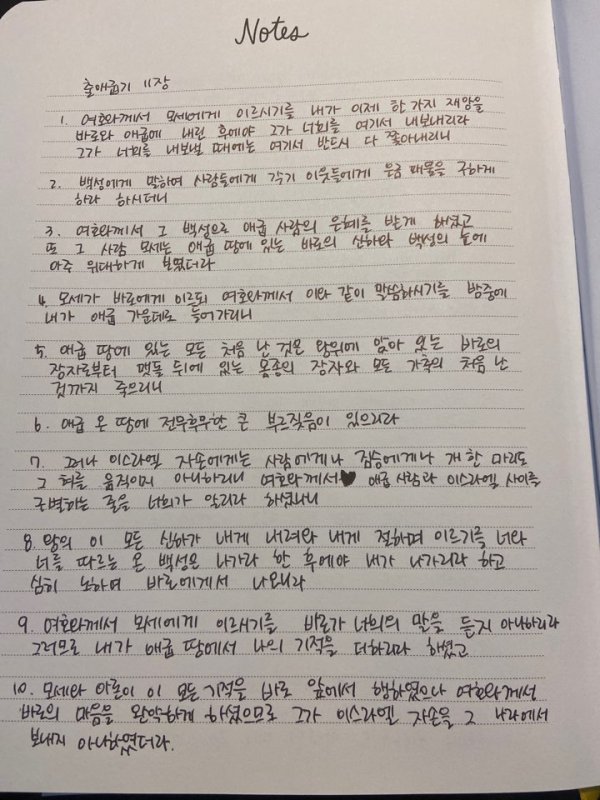 Notes
출애굽기 11장
1. 여호와께서 모세에게 이르시기를 내가 이제 한 가지 재앙을
바로와 애굽에 내린 후에야 그가 너희를 여기서 내보내리라
그가 너희를 내보낼 때에는 여기서 반드시 다 쫓아내리니
2. 백성에게 말하여 사람들에게 각기 이웃들에게 은금 패물을 구하게
하라 하시더니
3. 여호와께서 그 백성으로 애굽 사람의 은혜를 받게 하셨고
또 그 사람 모세는 애굽 땅에 있는 바로의 신하와 백성의 눈에
아주 위대하게 보였더라
4. 모세가 바로에게 이르되 여호와께서 이와 같이 말씀하시기를 밤중에
내가 애굽 가운데로 들어가리니
5. 애굽 땅에 있는 모든 처음 난 것은 왕위에 앉아 있는 바로의
장자로부터 맷돌 뒤에 있는 몸종의 장자와 모든 가축의 처음 난
것까지 죽으리니
6. 애굽 온 땅에 전무후무한 큰 부르짖음이 있으리라
7. 그러나 이스라엘 자손에게는 사람에게나 짐승에게나 개 한 마리도
그 혀를 움직이지 아니하리니 여호와께서♥ 애굽 사람과 이스라엘 사이를
구별하는 줄을 너희가 알리라 하셨나니
8. 왕의 이 모든 신하가 내게 내려와 내게 절하며 이르기를 너와
너를 따르는 온 백성은 나가라 한 후에야 내가 나가리라 하고
심히 노하여 바로에게서 나오니라
9. 여호와께서 모세에게 이르시기를 바로가 너희의 말을 듣지 아니하리라
그러므로 내가 애굽 땅에서 나의 기적을 더하리라 하셨고
10. 모세와 아론이 이 모든 기적을 바로 앞에서 행하였으나 여호와께서
바로의 마음을 완악하게 하셨으므로 그가 이스라엘 자손을 그 나라에서
보내지 아니하였더라.